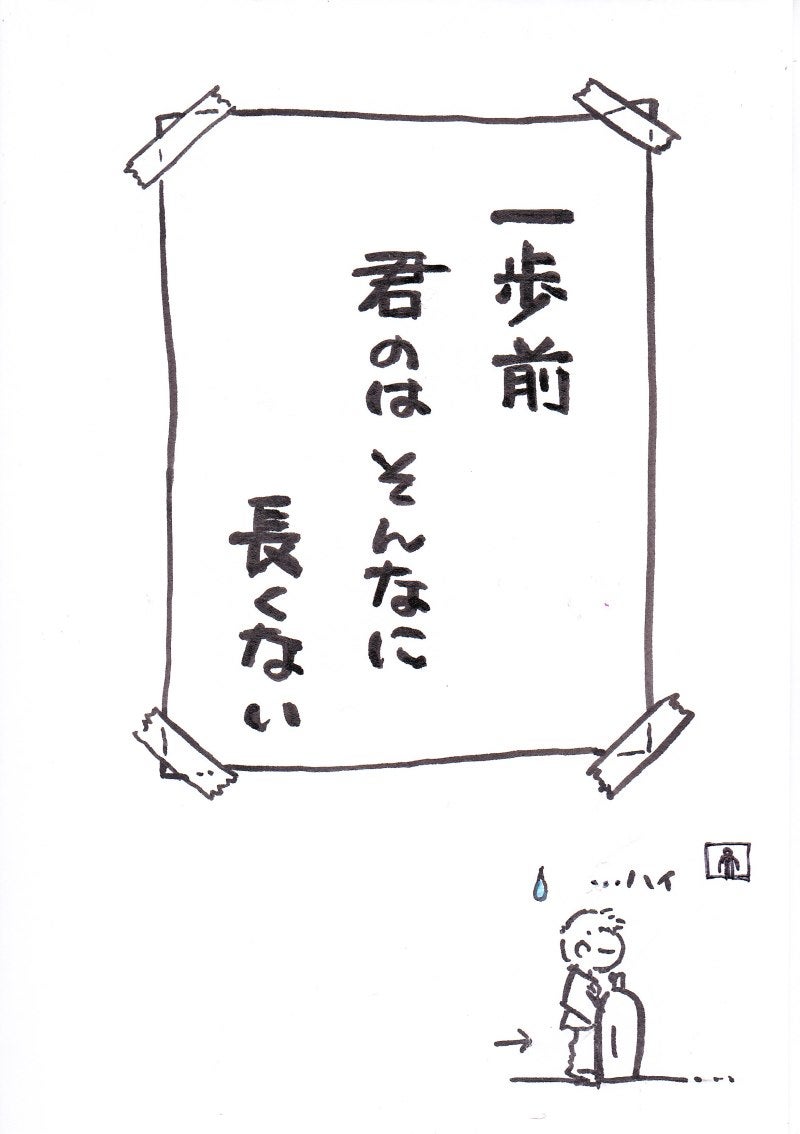 一歩前
君のは そんなに
長くない
…ハイ